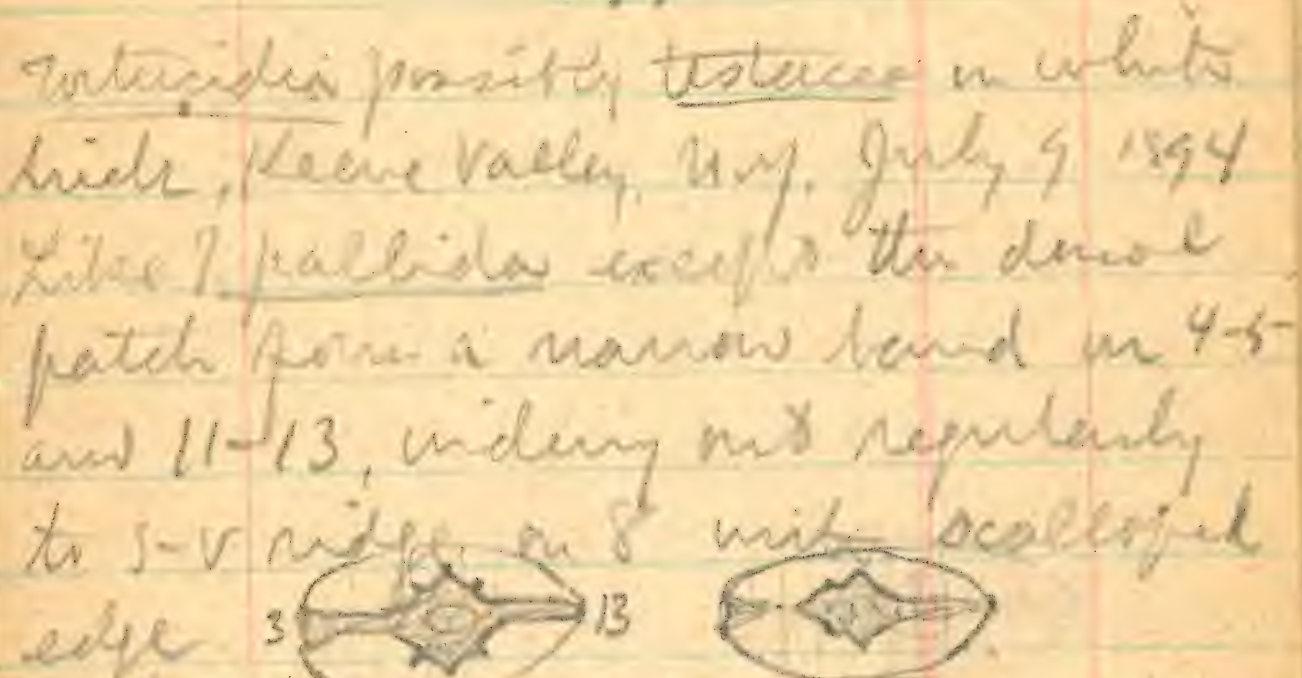 Tortricidia possibly testacea on white
birch, Keene Valley, N.Y. July 9 1894
Like T pallida except the dorsal
patch forms a narrow band on 4-5
and 11-13, widening out regularly
to s-v ridge on 8 with scalloped
edge
3 13